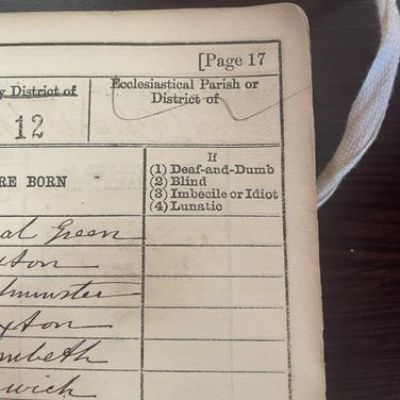 [Page 17
y District of
Ecclesiastical Parish or
District of
12
RE BORN
If
(1) Deaf-and-Dumb
(2) Blind
(3) Imbecile or Idiot
(4) Lunatic
al Green
xton
dminster
xton
mbeth
wich